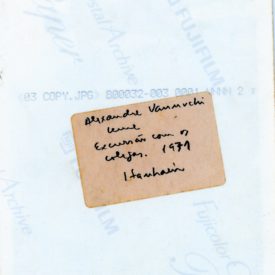 Crystal Archive
FUJIFILM
<03 COPY.JPG> 800032-003 0001 NNNN 2 x
Alexandre Vannucchi
Leme
Excursão com os
colegas. 1971
Itanhaém
Archive
FUJIFILM
Fujicolor